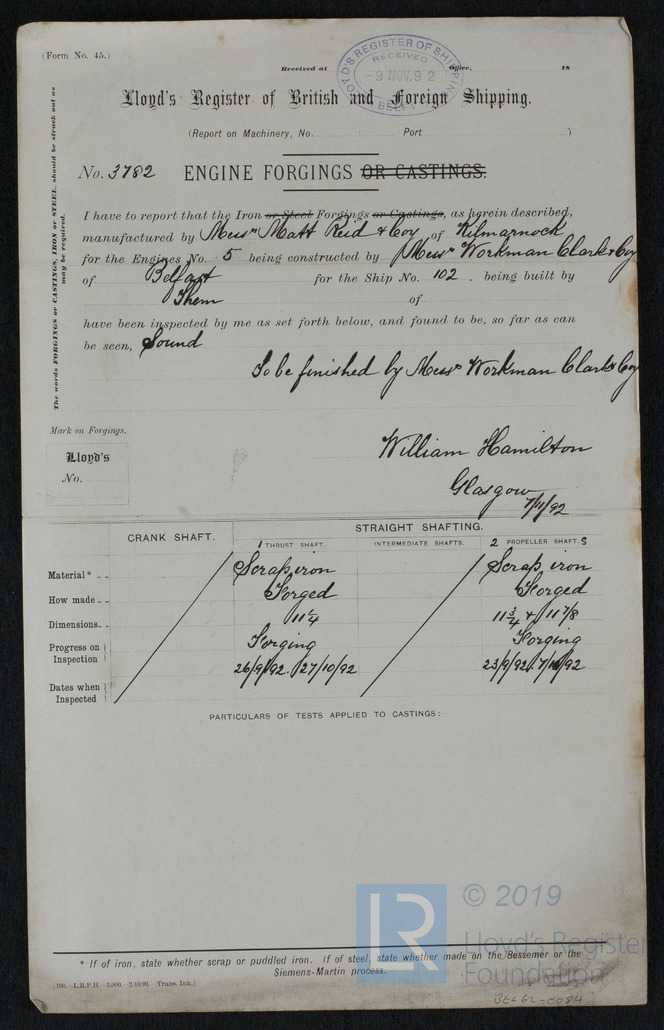 (Form No. 45.)
Received at Office, 18
LLOYD'S REGISTER OF SHIPPING
RECEIVED
-9 NOV.92
Lloyd's Register of British and Foreign Shipping.
(Report on Machinery, No. Port )
No. 3782 ENGINE FORGINGS OR CASTINGS.
The words FORGINGS or CASTINGS, IRON or STEEL, should be struck out as
may be required.
I have to report that the Iron or Steel Forgings or Castings, as herein described,
manufactured by Messrs Matt Reid & Coy of Kilmarnock
for the Engines No. 5 being constructed by Messrs Workman Clark & Coy
of Belfast for the Ship No. 102, being built by
Them of
have been inspected by me as set forth below, and found to be, so far as can
be seen, Sound
To be finished by Messrs Workman Clark & Coy
Mark on Forgings.
Lloyd's
No.
William Hamilton
Glasgow
7/11/92
CRANK SHAFT. STRAIGHT SHAFTING.
1 THRUST SHAFT. INTERMEDIATE SHAFTS. 2 PROPELLER SHAFT.S
Material* Scrap iron Scrap iron
How made Forged Forged
Dimensions 11¼ 11¾ & 11 7/8
Progress on Inspection Forging Forging
Dates when Inspected 26/9/92. 27/10/92 23/9/92. 7/11/92
PARTICULARS OF TESTS APPLIED TO CASTINGS:
* If of iron, state whether scrap or puddled iron. If of steel, state whether made on the Bessemer or the
Siemens-Martin process.
[190. L.R.P.H. 3,000. 2/10/91. Trans. Ink.]
BEL62-0084
LR
© 2019
Lloyd's Register
Foundation